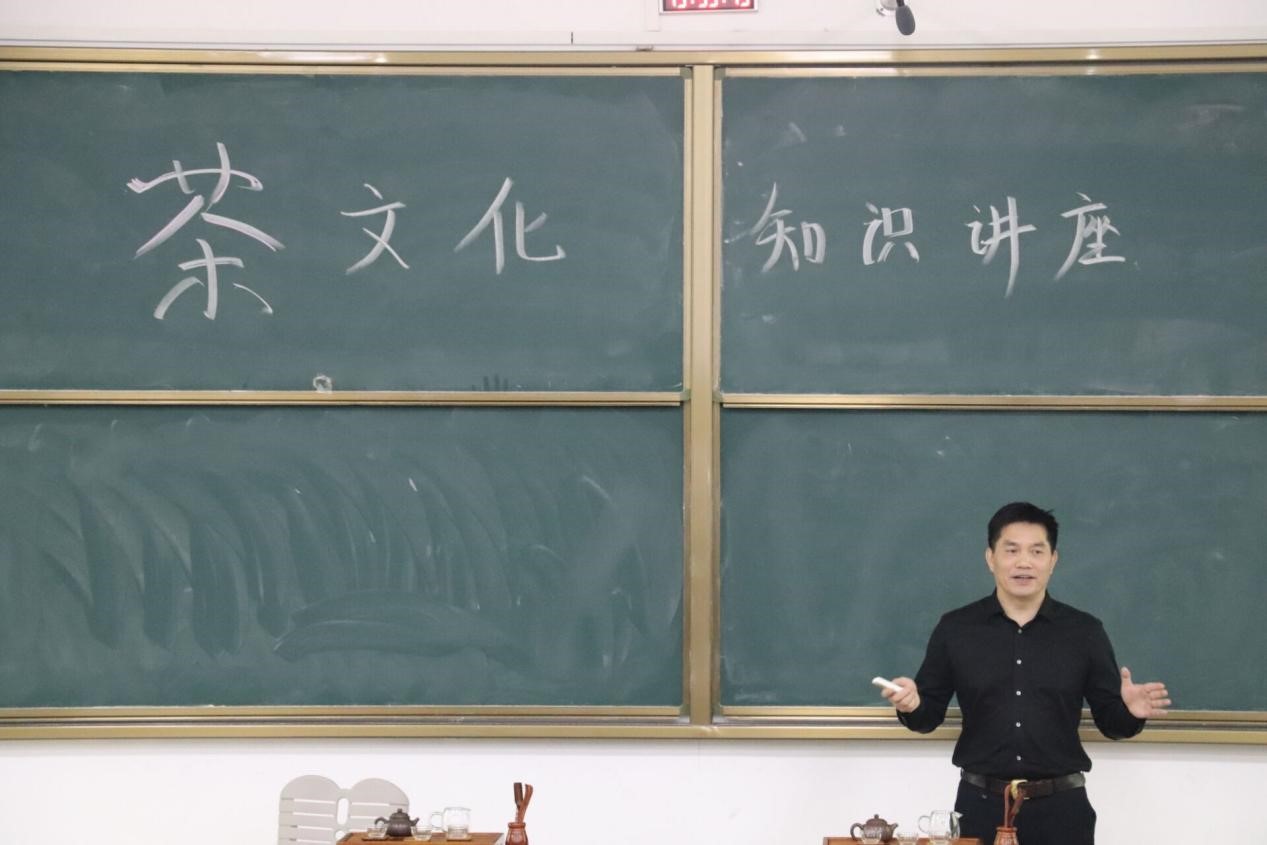 茶文化知识讲座